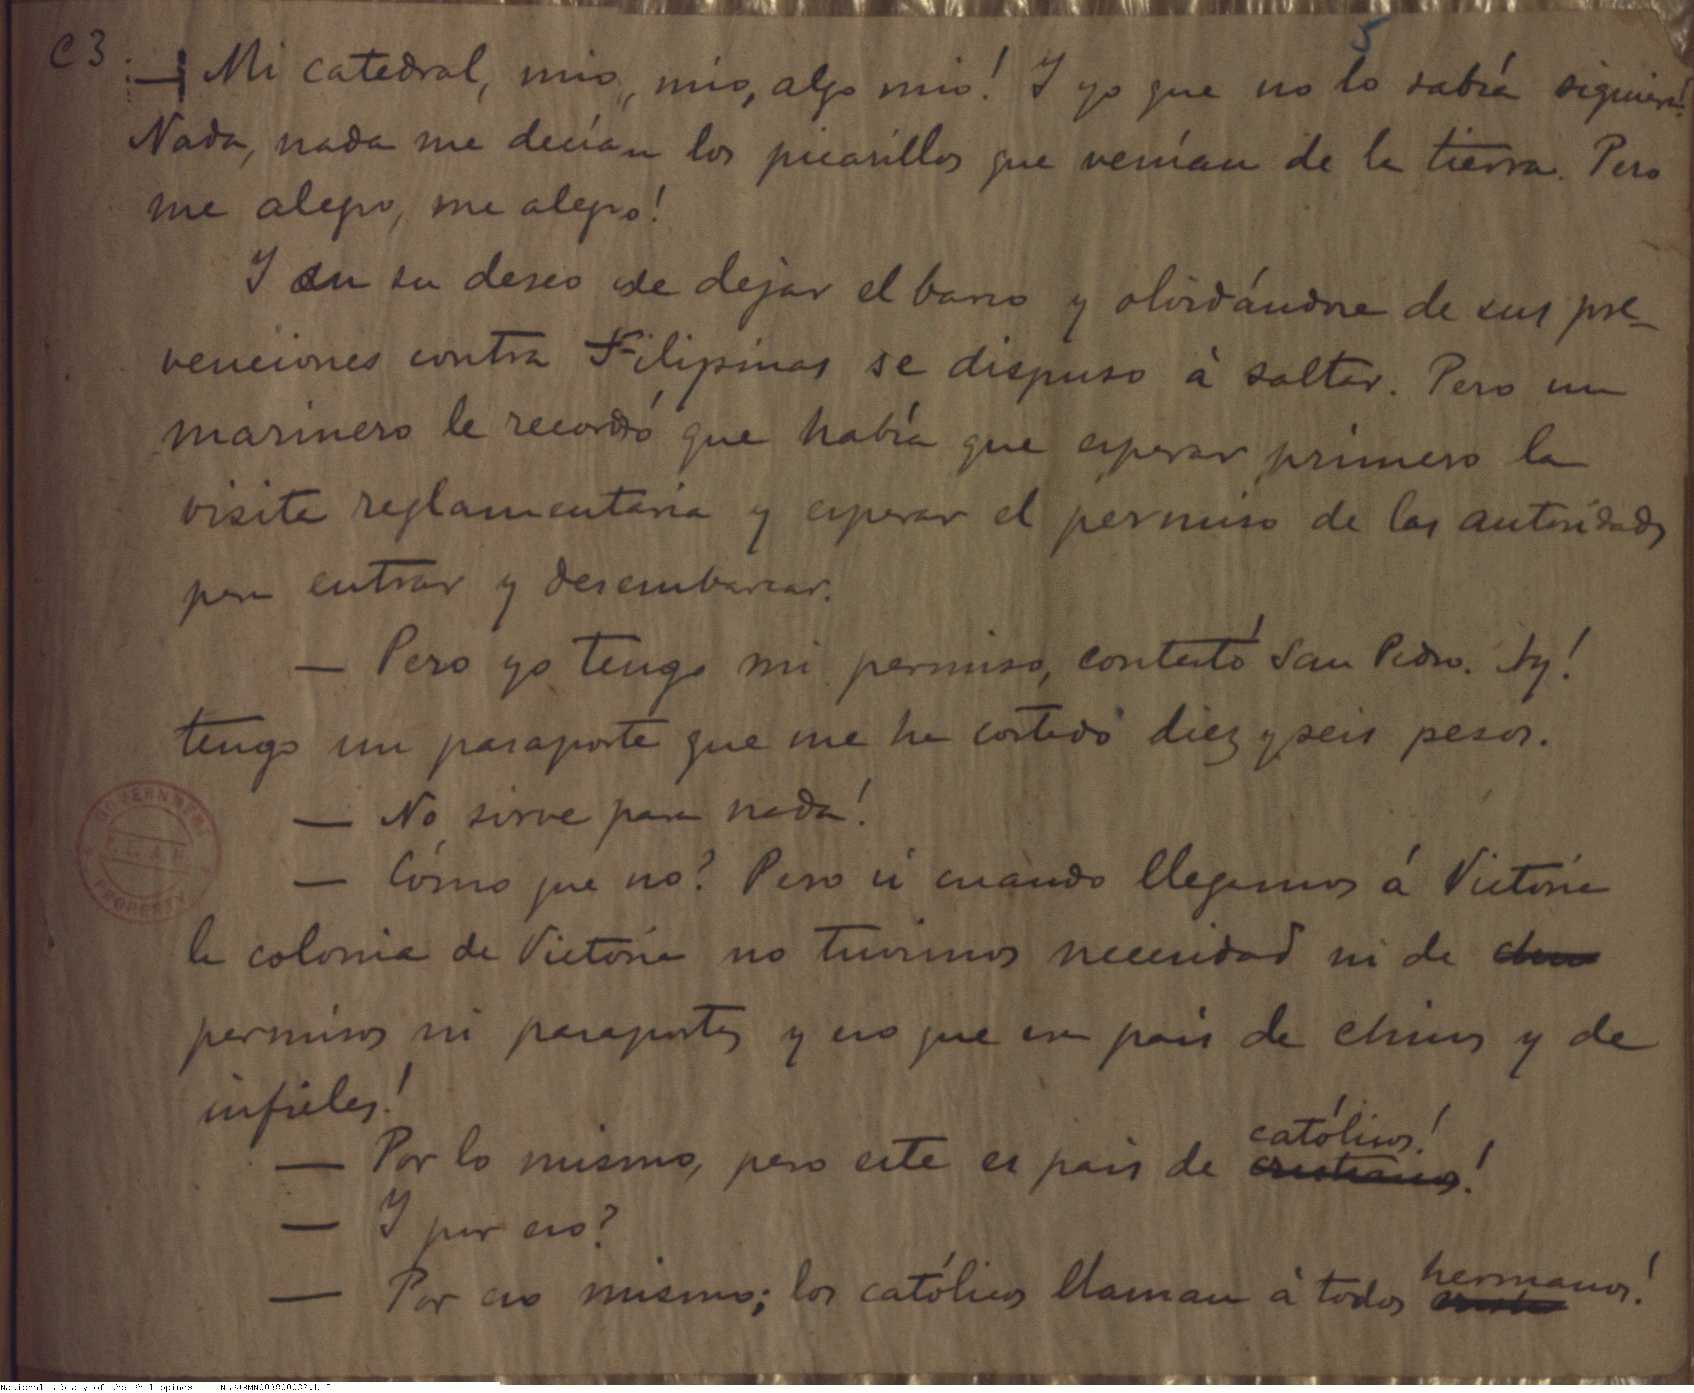 C 3
5
— Mi catedral, mio, mio, algo mio! I yo que no lo sabía siquiera!
Nada, nada me decían los picarillos que venían de la tierra. Pero
me alegro, me alegro!
I en su deseo de dejar el barco y olvidándose de sus pre-
venciones contra Filipinas se dispuso á saltar. Pero un
marinero le recordó que había que esperar primero la
visita reglamentaria y esperar el permiso de las autoridades
para entrar y desembarcar.
— Pero yo tengo mi permiso, contestó San Pedro. Ay!
tengo un pasaporte que me ha costado diez y seis pesos.
— No sirve para nada!
— Cómo que no? Pero si cuando llegamos á Victoria
la colonia de Victoria no tuvimos necesidad ni de
permisos ni pasaportes y eso que era pais de chinos y de
infieles!
— Por lo mismo, pero este es pais de cristianos! católicos!
— I por eso?
— Por eso mismo; los católicos llaman á todos hermanos!
GOVERNMENT
PROPERTY
National Library of the Philippines